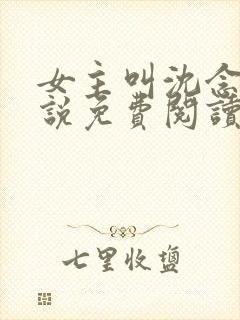 女主叫沈念
說免費閱讀
七里收鹽